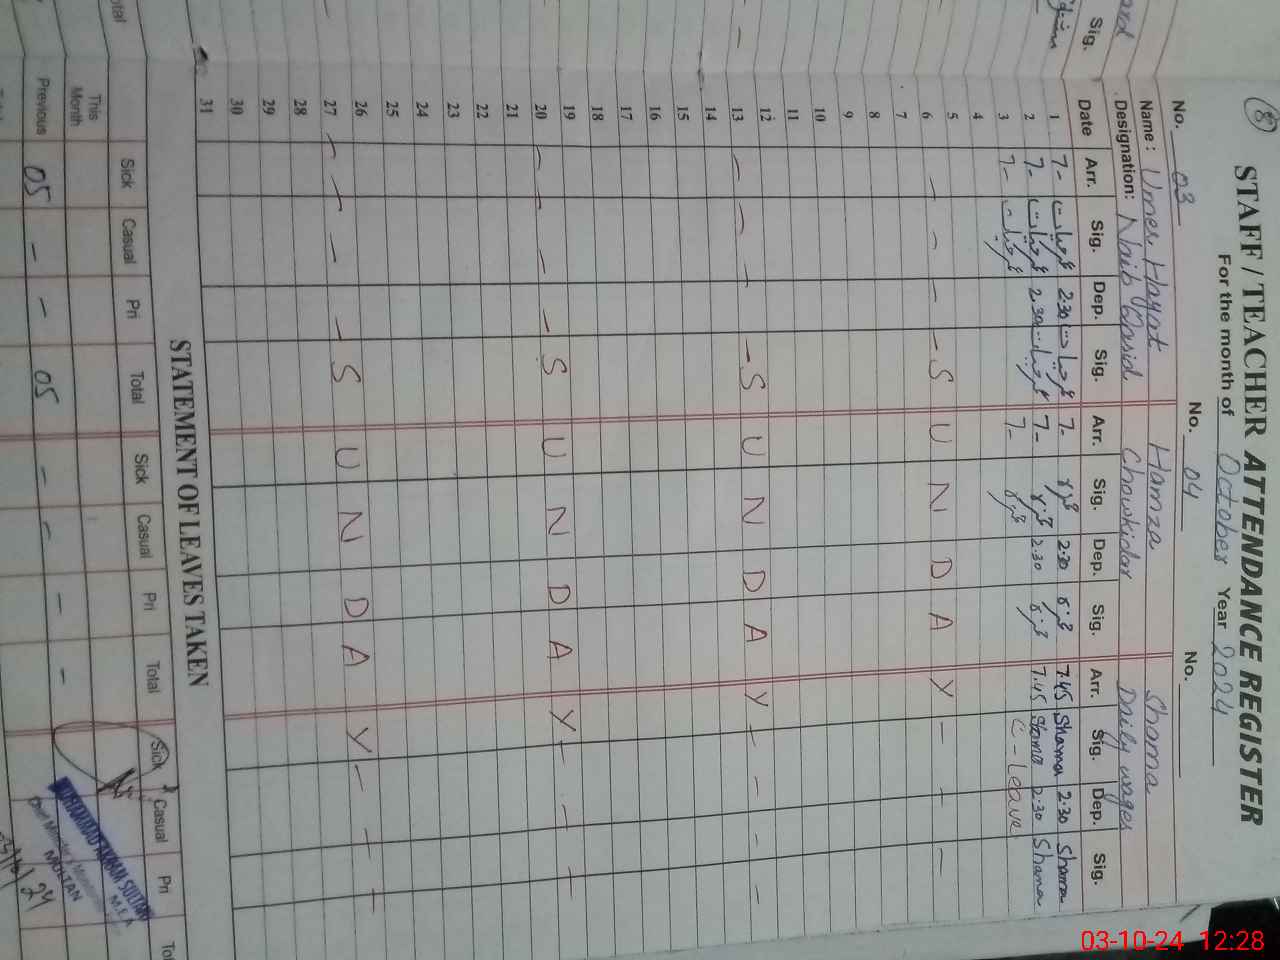 8
STAFF / TEACHER ATTENDANCE REGISTER
For the month of October Year 2024
No. 03 No. 04 No.
Name: Umer Hayat Hamza Shama
Designation: Naib Qasid Chowkidar Daily wages
Sig. Date Arr. Sig. Dep. Sig. Arr. Sig. Dep. Sig. Arr. Sig. Dep. Sig.
1 7- عمرحیات 2.30 عمرحیات 7- حمزہ 2.30 حمزہ 7.45 Shama 2.30 Shama
2 7- عمرحیات 2.30 عمرحیات 7- حمزہ 2.30 حمزہ 7.45 Shama 2:30 Shama
3 7- عمرحیات 7- حمزہ C-Leave
4
5
6 - - - - S U N D A Y - - -
7
8
9
10
11
12
13 - - - - S U N D A Y - - - -
14
15
16
17
18
19
20 - - - - S U N D A Y - - - -
21
22
23
24
25
26
27 - - - - S U N D A Y - - -
28
29
30
31
STATEMENT OF LEAVES TAKEN
Sick Casual Pri Total Sick Casual Pri Total Sick Casual Pri
This Month
Previous 05 - - 05 - - - -
MUHAMMAD AKRAM SULTAN
M.E.A
MULTAN
03-10-24 12:28